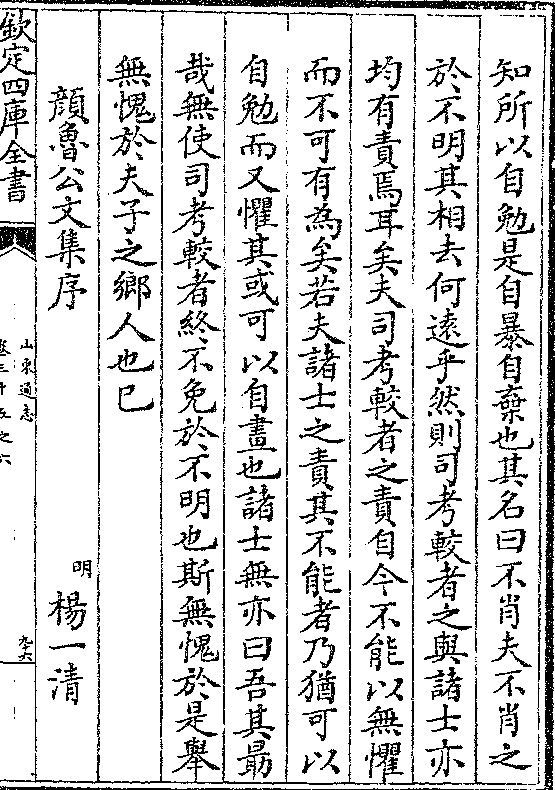 知所以自勉是自暴自棄也其名曰不肖夫不肖之
於不明其相去何遠乎然則司考較者之與諸士亦
均有責焉耳矣夫司考較者之責自今不能以無懼
而不可有為矣若夫諸士之責其不能者乃猶可以
自勉而又懼其或可以自畫也諸士無亦曰吾其勗
哉無使司考較者終不免於不明也斯無愧於是舉
無愧於夫子之鄉人也已
顔魯公文集序 明 楊一清
欽定四庫全書
山東通志
卷三十五之六
九十六